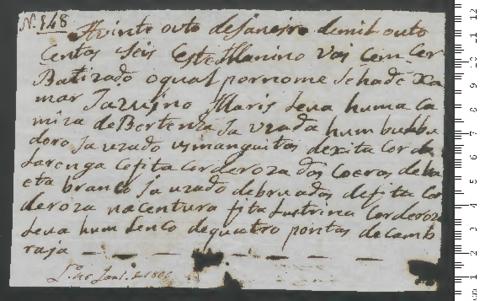 N. 148
A vinte outo de Janeiro de mil outo
centos i seis Este Menino vai sem ser
Batizado o qual por nome Se ha de xa
mar Ja Maris Leva huma ca
miza de Bertenha Ja uzada hum
Ja uzado us manguitos de xita Cor de
Laranga Cofita Cor de roza dos Coeros de ba
eta branco Ja uzado debruados de fita Cor
de roza na centura fita Lustrina Cor de roza
Leva hum Lenco de quatro pontas de camb
raja
de 1806